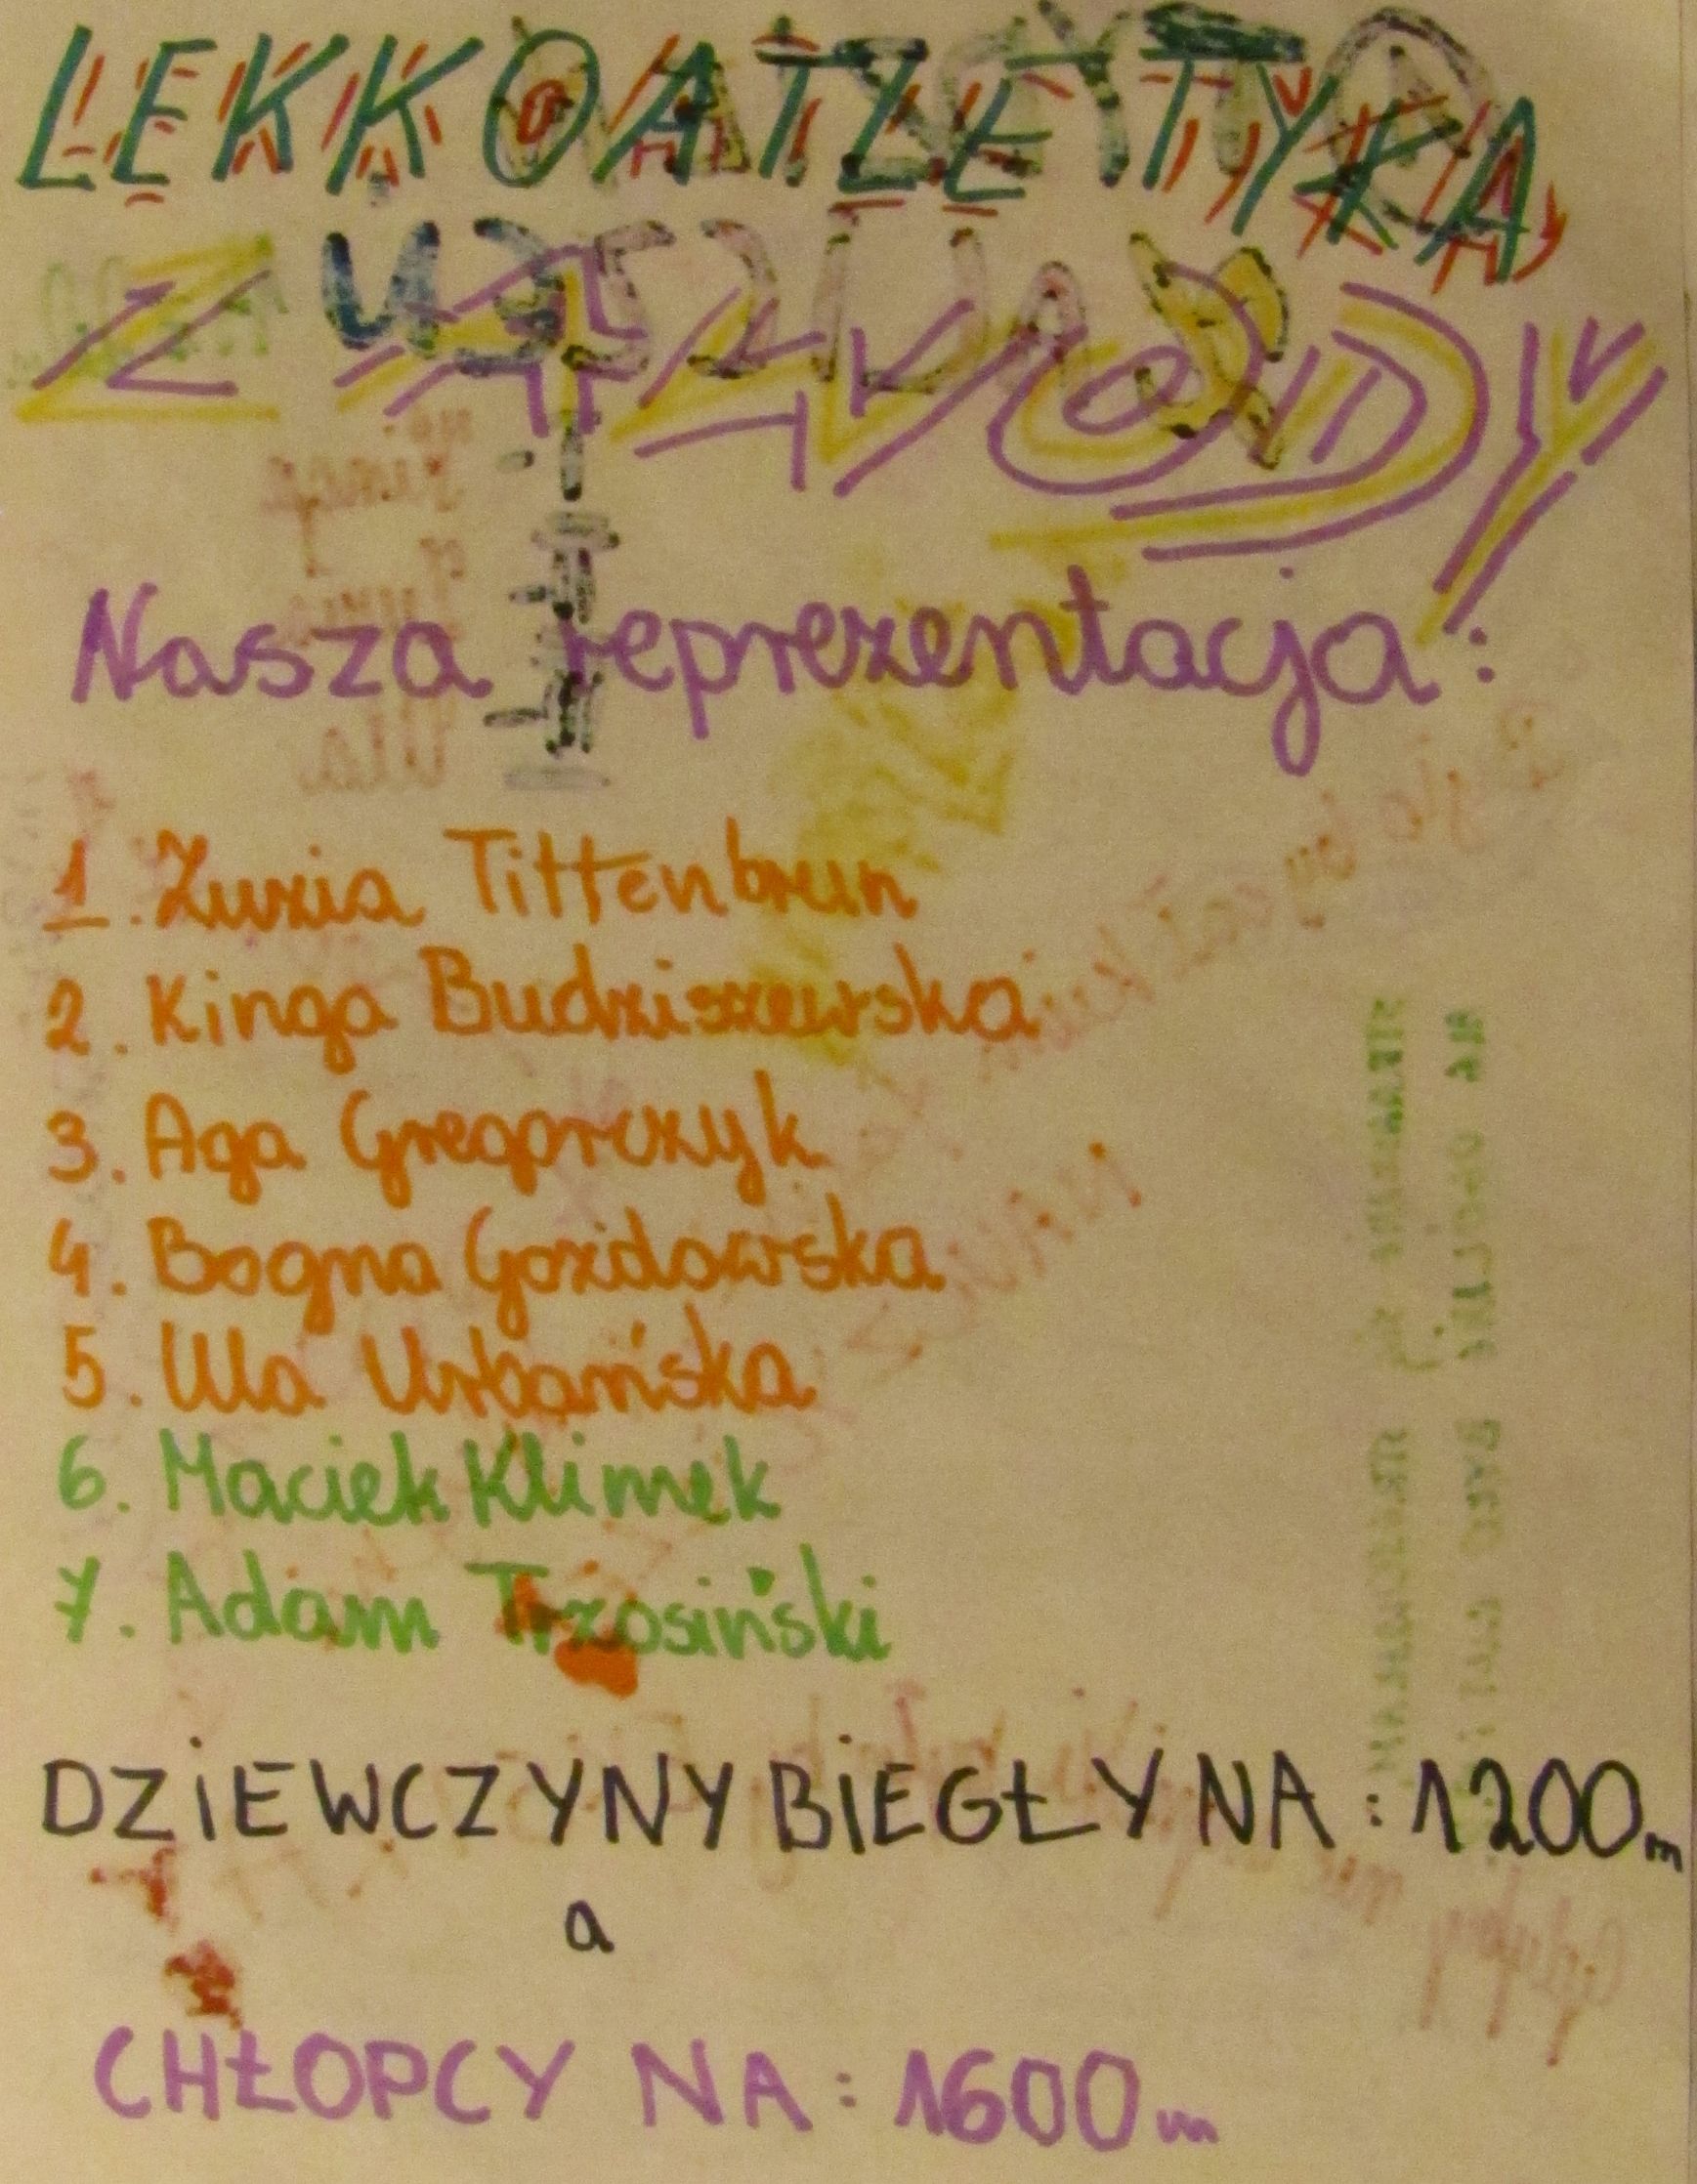 LEKKOATLETYKA
ZAWODY
Nasza reprezentacja:
1. Zuzia Tittenbrun
2. Kinga Budziszewska
3. Aga Gregorczyk
4. Bogna Gozdowska
5. Ula Urbańska
6. Maciek Klimek
7. Adam Trzosiński
DZiEWCZYNY BiEGŁY NA: 1200m
a
CHŁOPCY NA: 1600m